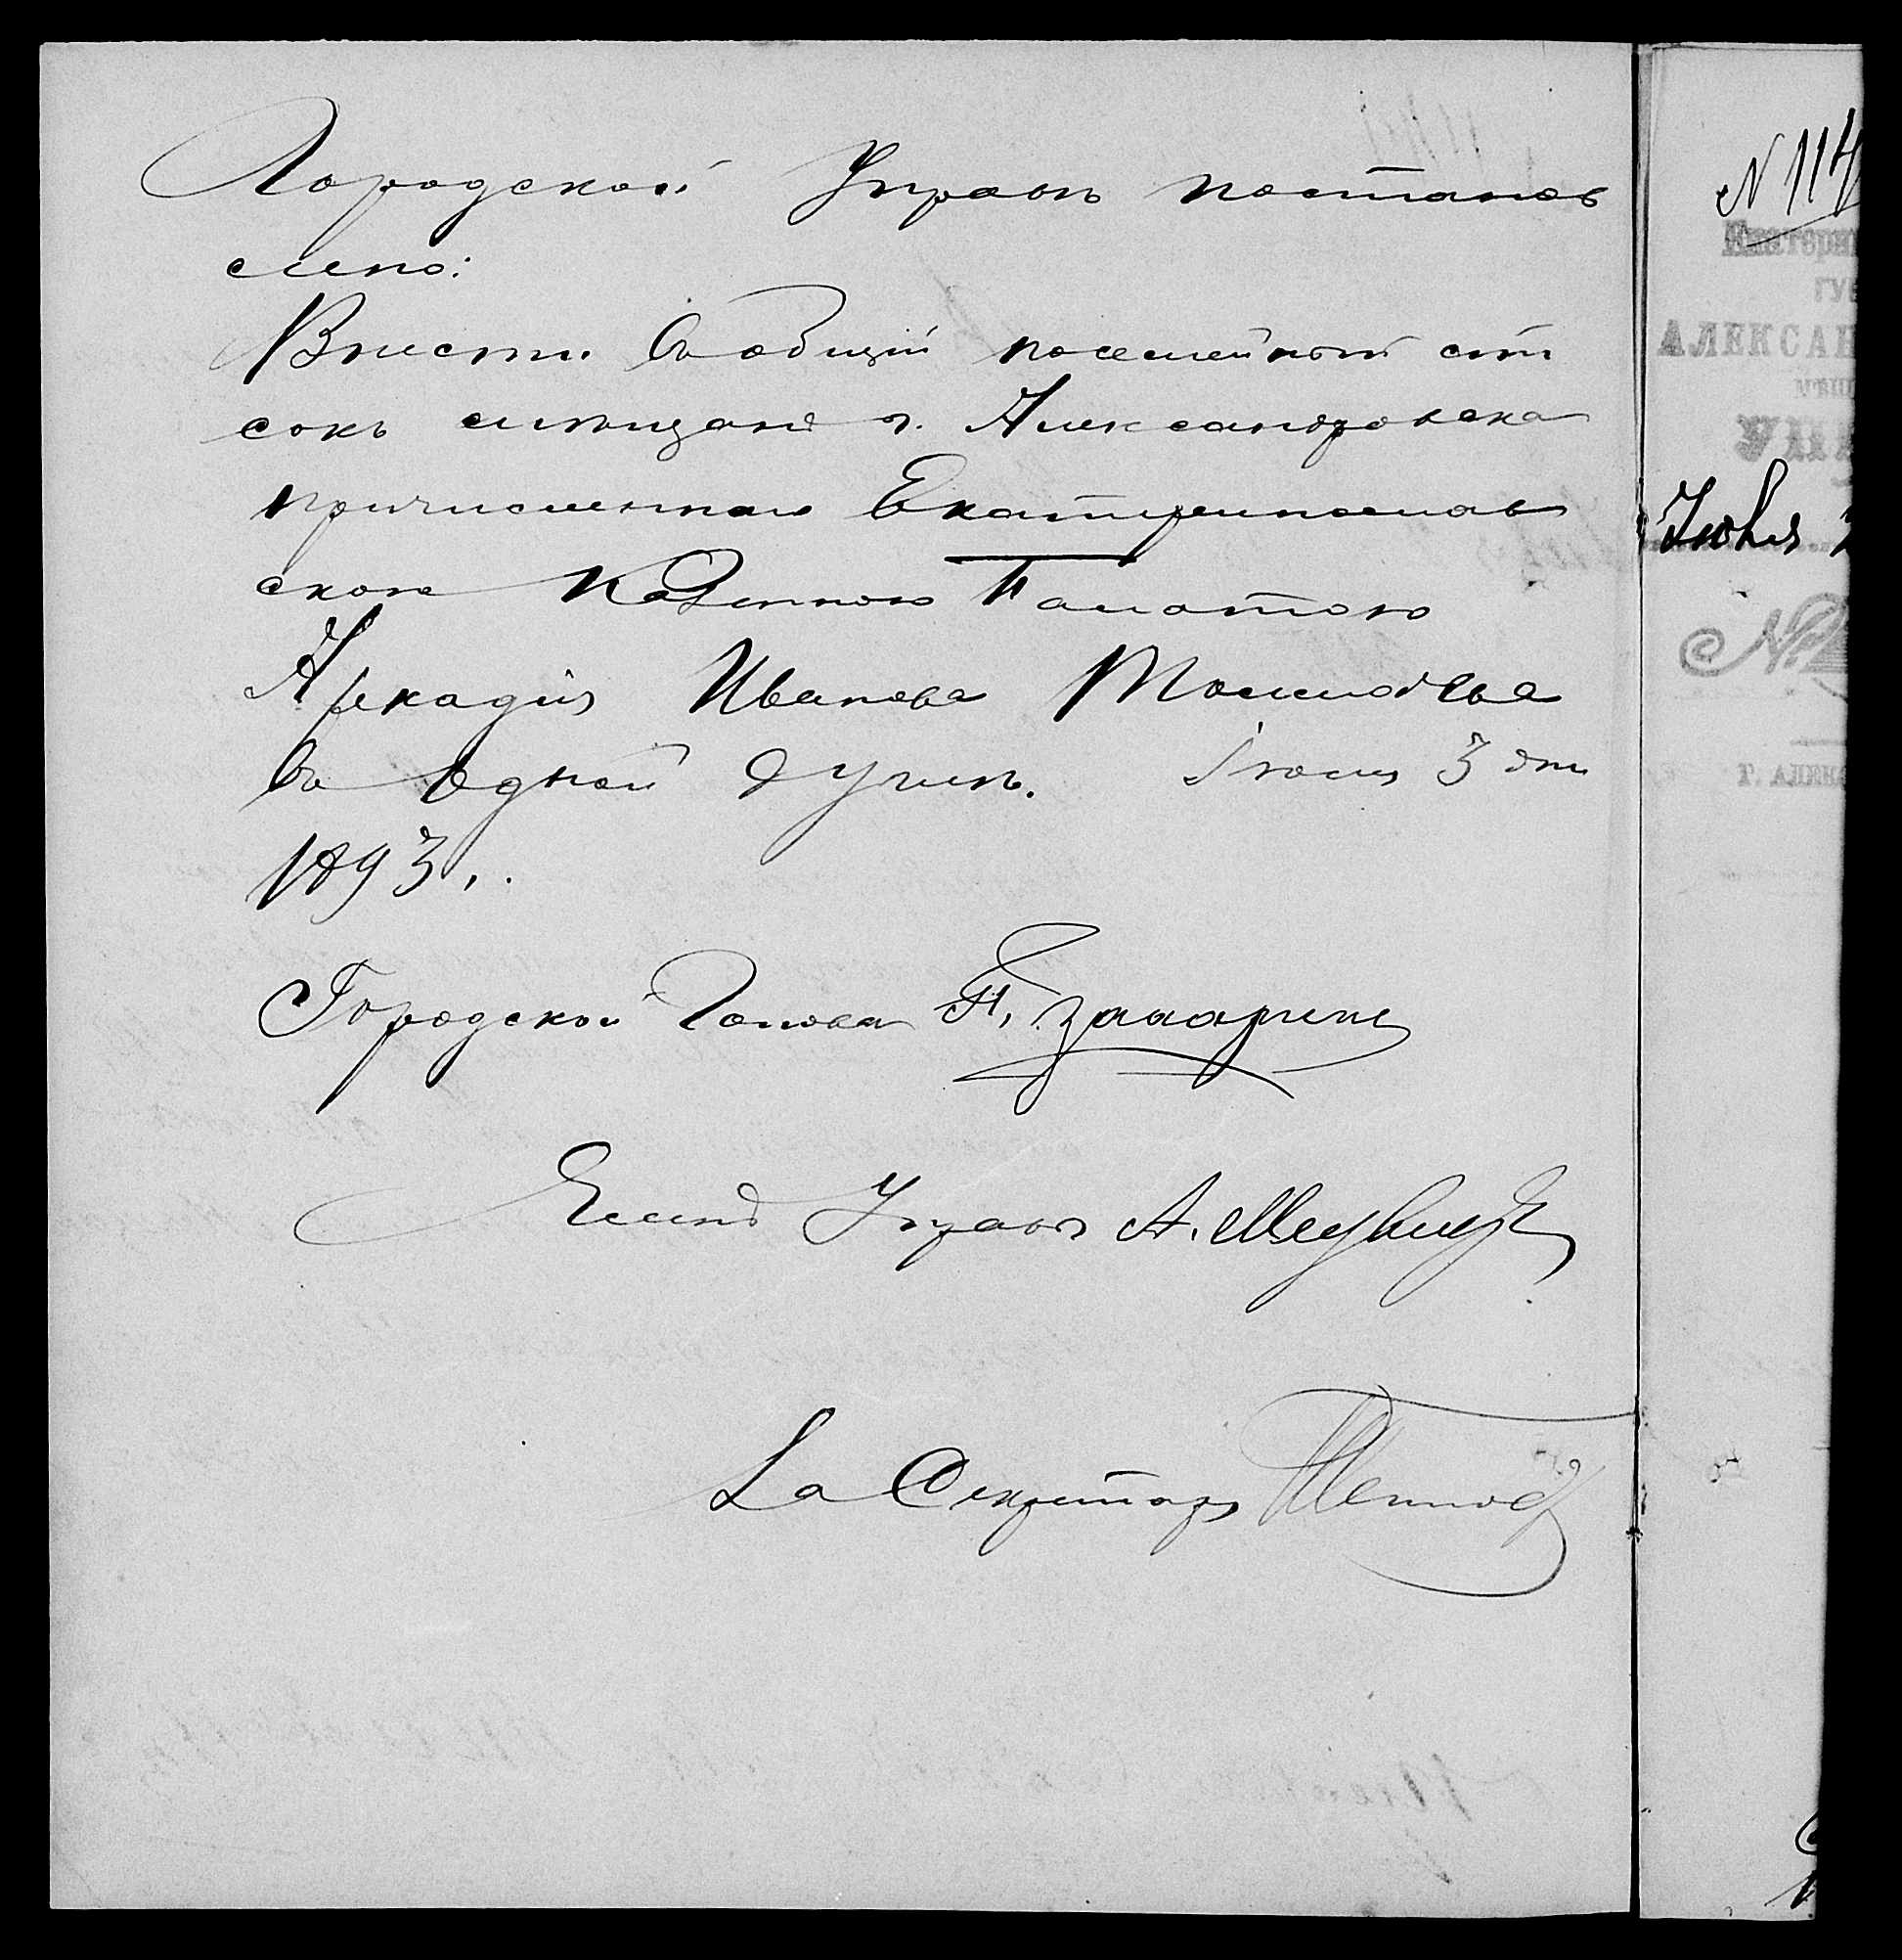 Городской Управѣ постанов
лено:
Внести въ общій посемейный спи
сокъ мѣщанъ г. Александровска
причисленнаго Екатеринослав
скою Казенною Палатою
Аркадія Иванова
въ одной душѣ. Іюля 3 дня
1893 г.
Городской Голова
Членъ Управы А.
За Секретаря
N 114
Екатерин
ГУБ
АЛЕКСАН
МѢЩ
УПР
Іюля
№
Г. АЛЕКС